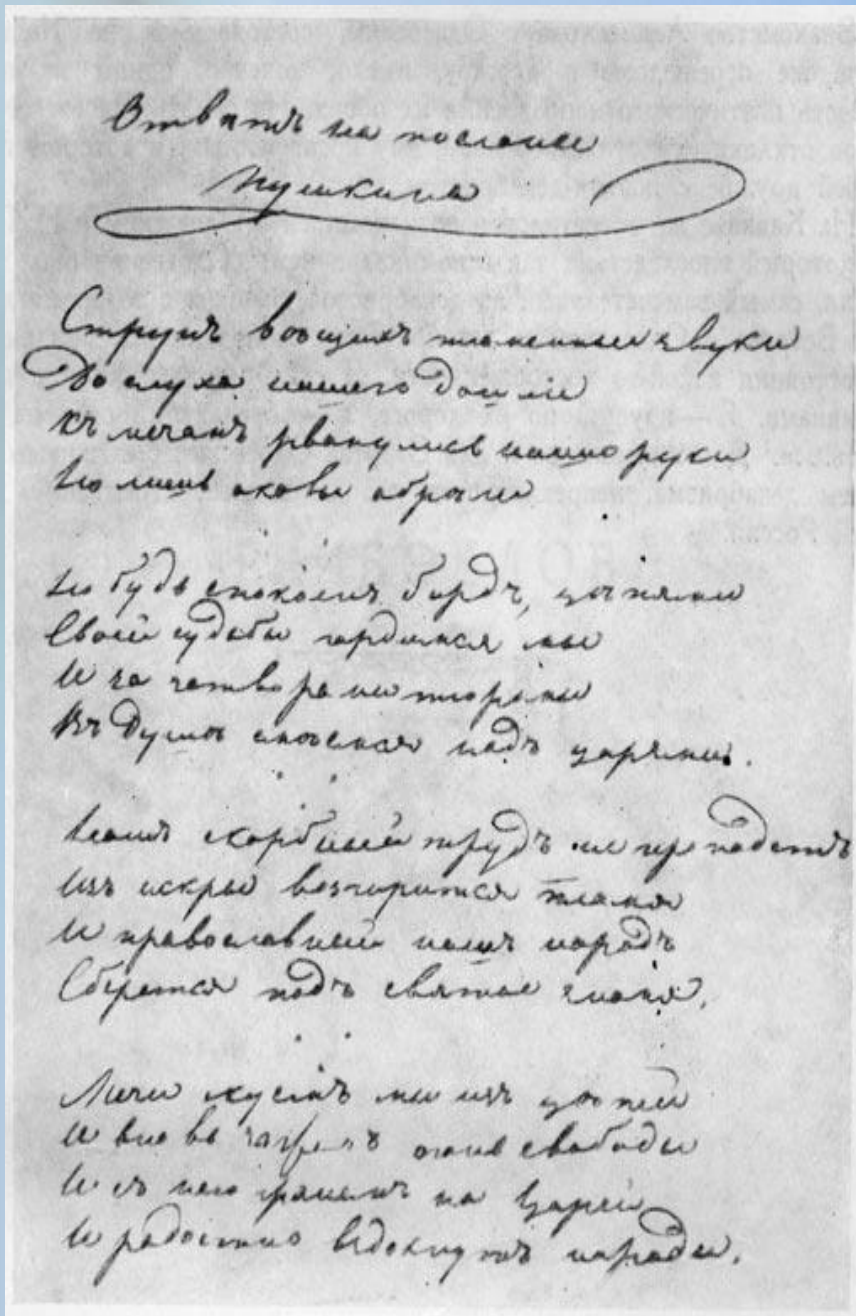 Ответъ на посланіе
Пушкина
Струнъ вѣщихъ пламенные звуки
До слуха нашего дошли
Къ мечамъ рванулись наши руки
Но лишь оковы обрѣли
Но будь спокоенъ бардъ, цѣпями
Своей судьбой гордимся мы
И за затворами тюрьмы
Въ душѣ смѣемся надъ царями.
Нашъ скорбный трудъ не пропадетъ
Изъ искры возгорится пламя
И православный нашъ народъ
Сберется подъ святое знамя.
Мечи скуемъ мы изъ цѣпей
И вновь огонь свободы
И съ нею грянемъ на царей
И радостно вздохнутъ народы.